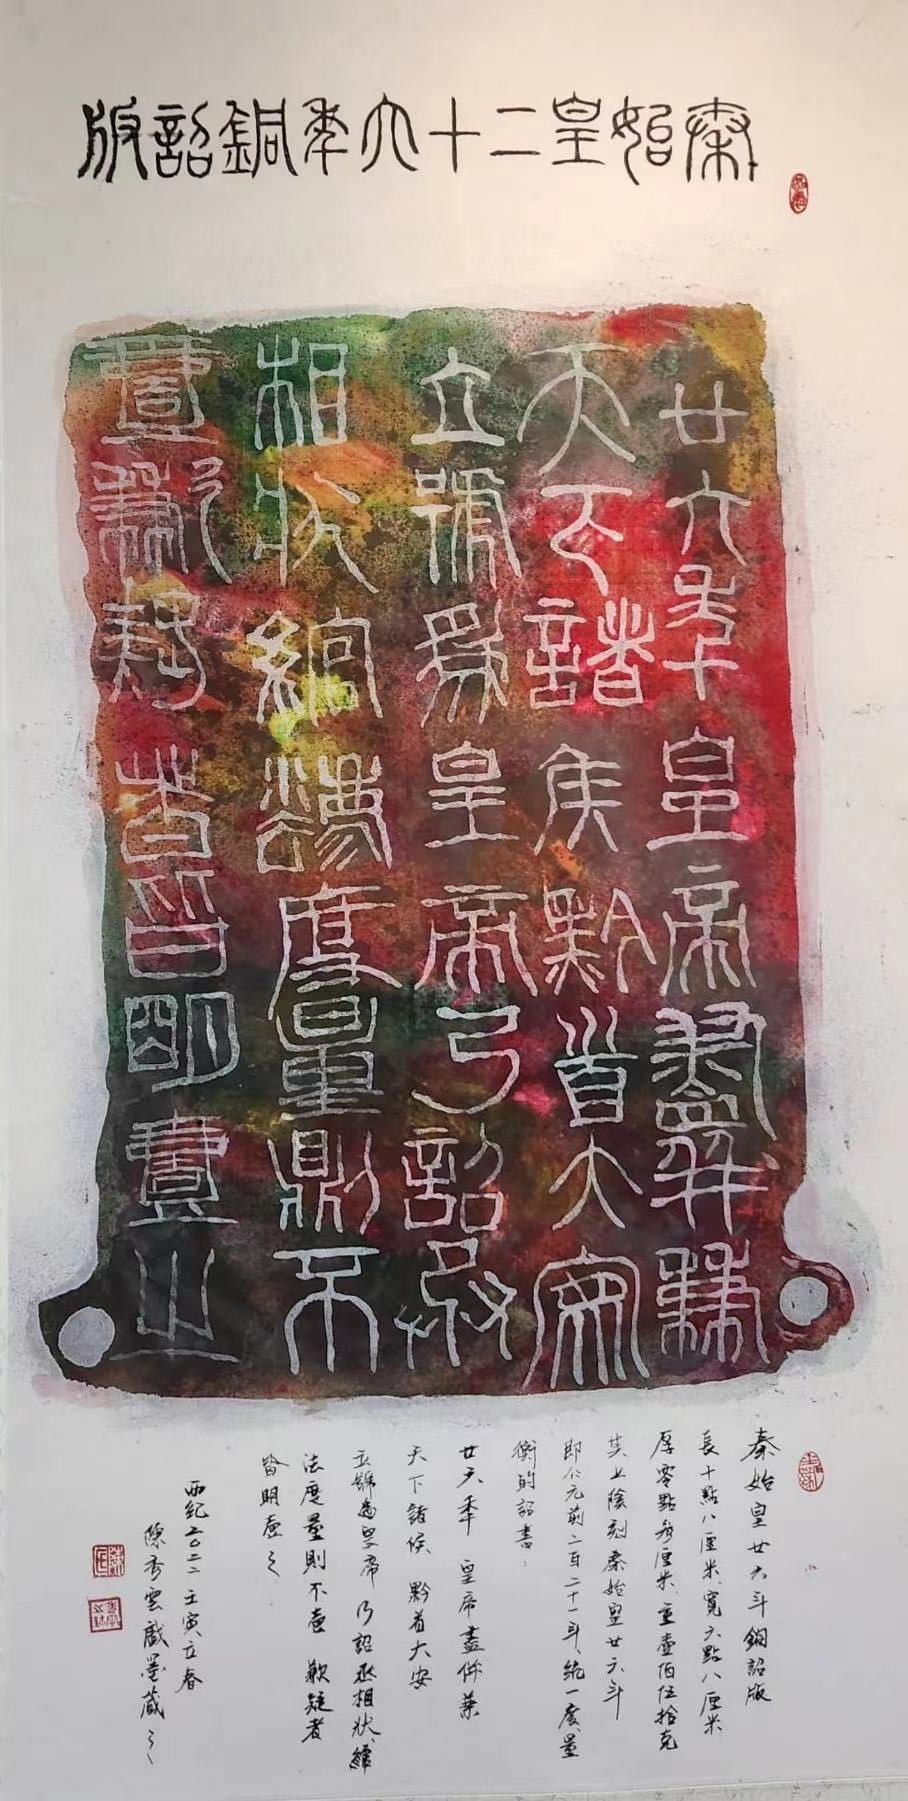 秦始皇二十六年銅詔版
廿六年皇帝盡并兼
天下諸侯黔首大安
立號為皇帝乃詔丞
相狀綰灋度量則不
壹歉疑者皆明壹之
秦始皇廿六年銅詔版
長十點八厘米、寬六點八厘米
厚零點叁厘米、重壹佰伍拾克
其上陰刻秦始皇廿六年
即公元前二百二十一年、統一度、量
衡的詔書：
廿六年 皇帝盡併兼
天下諸侯 黔首大安
立號為皇帝 乃詔丞相狀、綰
法度量則不壹 歉疑者
皆明壹之
西紀二〇二二壬寅立春
陳秀雲戲墨藏之